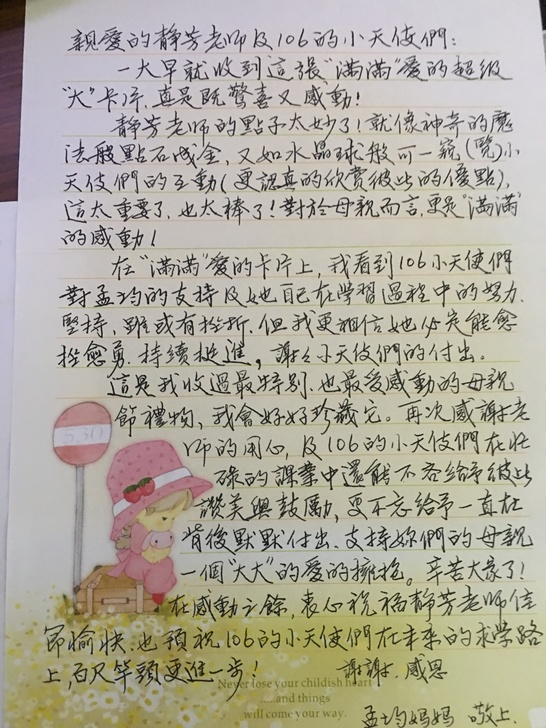 親愛的靜芳老師及106的小天使們:
一大早就收到這張"滿滿"愛的超級
"大"卡片,真是既驚喜又感動!
靜芳老師的點子太妙了!就像神奇的魔
法般點石成金,又如水晶球般可一窺(覽)小
天使們的互動(更認真的欣賞彼此的優點),
這太重要了,也太棒了!對於母親而言,更是"滿滿"
的感動!
在"滿滿"愛的卡片上,我看到106小天使們
對孟均的支持及她自己在學習過程中的努力、
堅持,雖或有挫折,但我更相信她必定能愈
挫愈勇,持續挺進。謝謝小天使們的付出。
這是我收過最特別、也最受感動的母親
節禮物,我會好好珍藏它。再次感謝老
師的用心,及106的小天使們在忙
碌的課業中還能不吝給予彼此
讚美與鼓勵,更不忘給予一直在
背後默默付出、支持妳們的母親
一個"大大"的愛的擁抱。辛苦大家了!
在感動之餘,衷心祝福靜芳老師佳
節愉快,也預祝106的小天使們在未來的求學路
上,百尺竿頭更進一步!
謝謝.感恩
Never lose your childish heart
.....and things
will come your way.
孟均媽媽 敬上